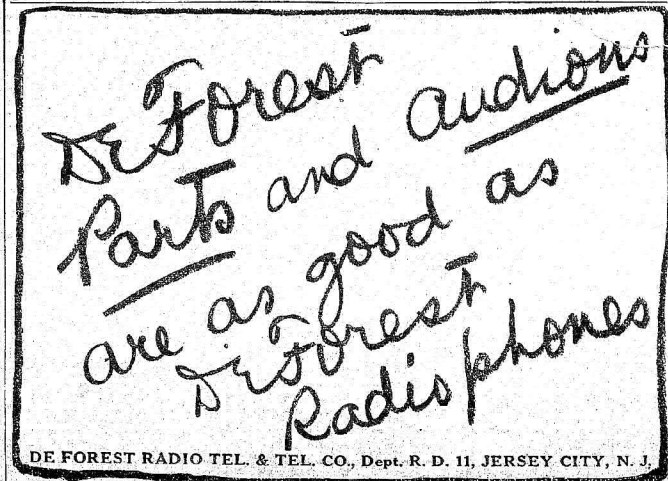 DeForest
Parts and audions
are as good as
DeForest
Radiophones
DE FOREST RADIO TEL. & TEL. CO., Dept. R. D. 11, JERSEY CITY, N. J.